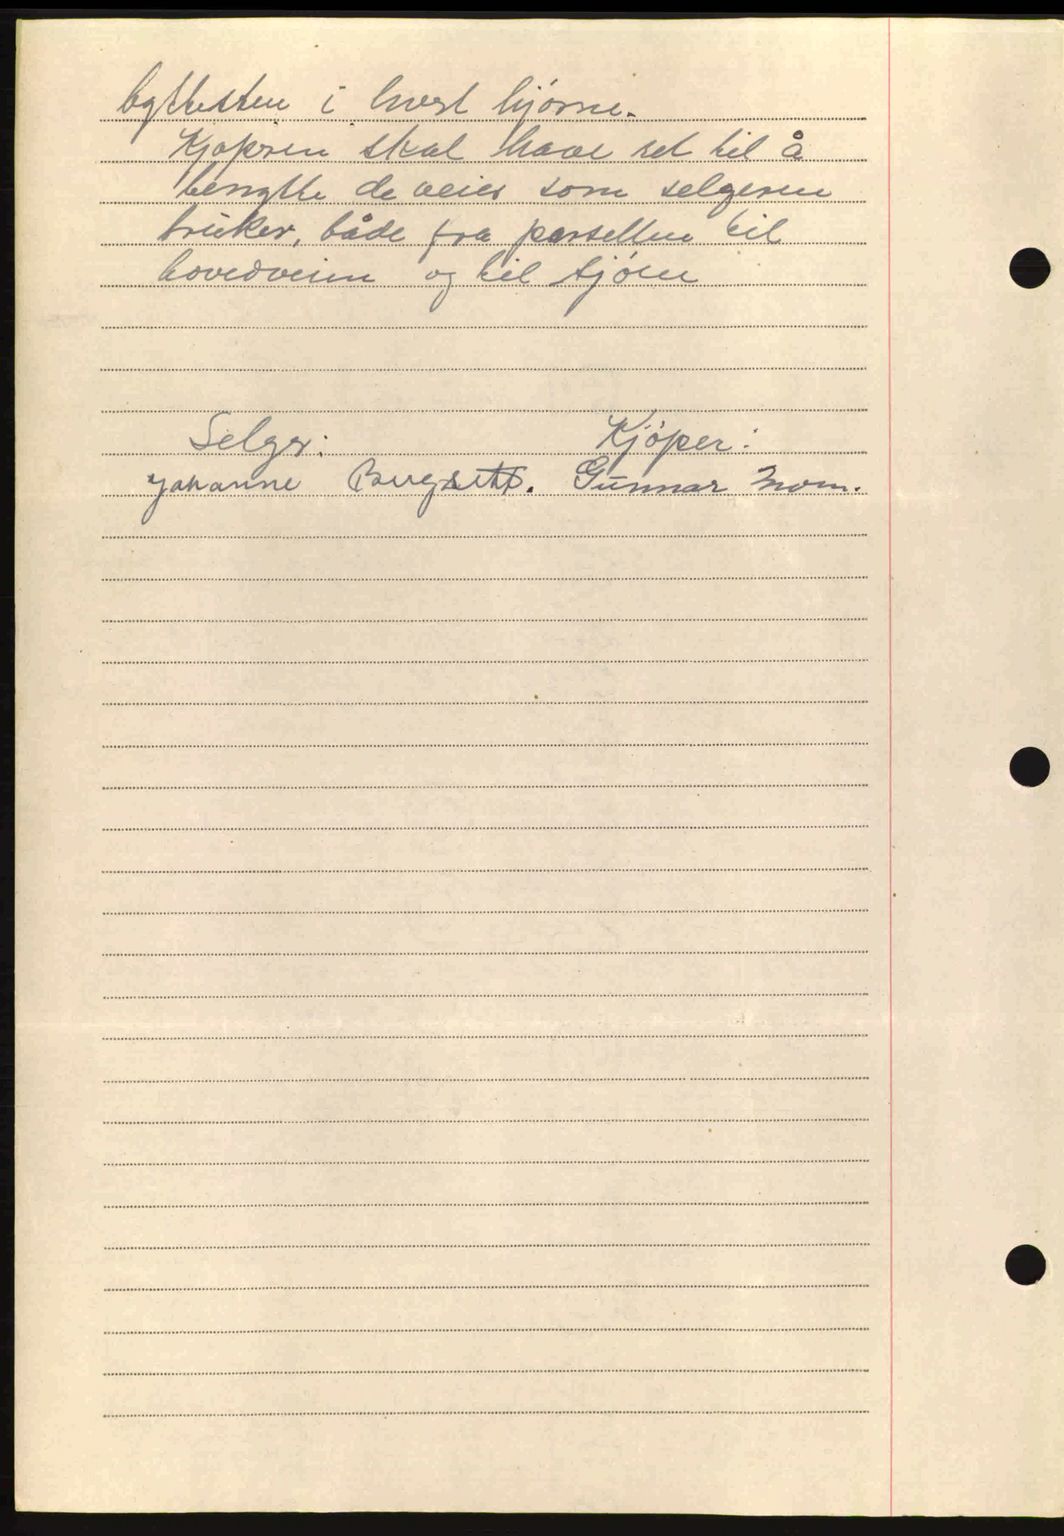 byttesten i hvert hjørne.
Kjøperen skal have ret til å
benytte de veier som selgeren
bruker, både fra parsellen til
hovedveien og til sjøen
Selger:
Kjøper:
Johanne Bugseth. Gunnar Moen.